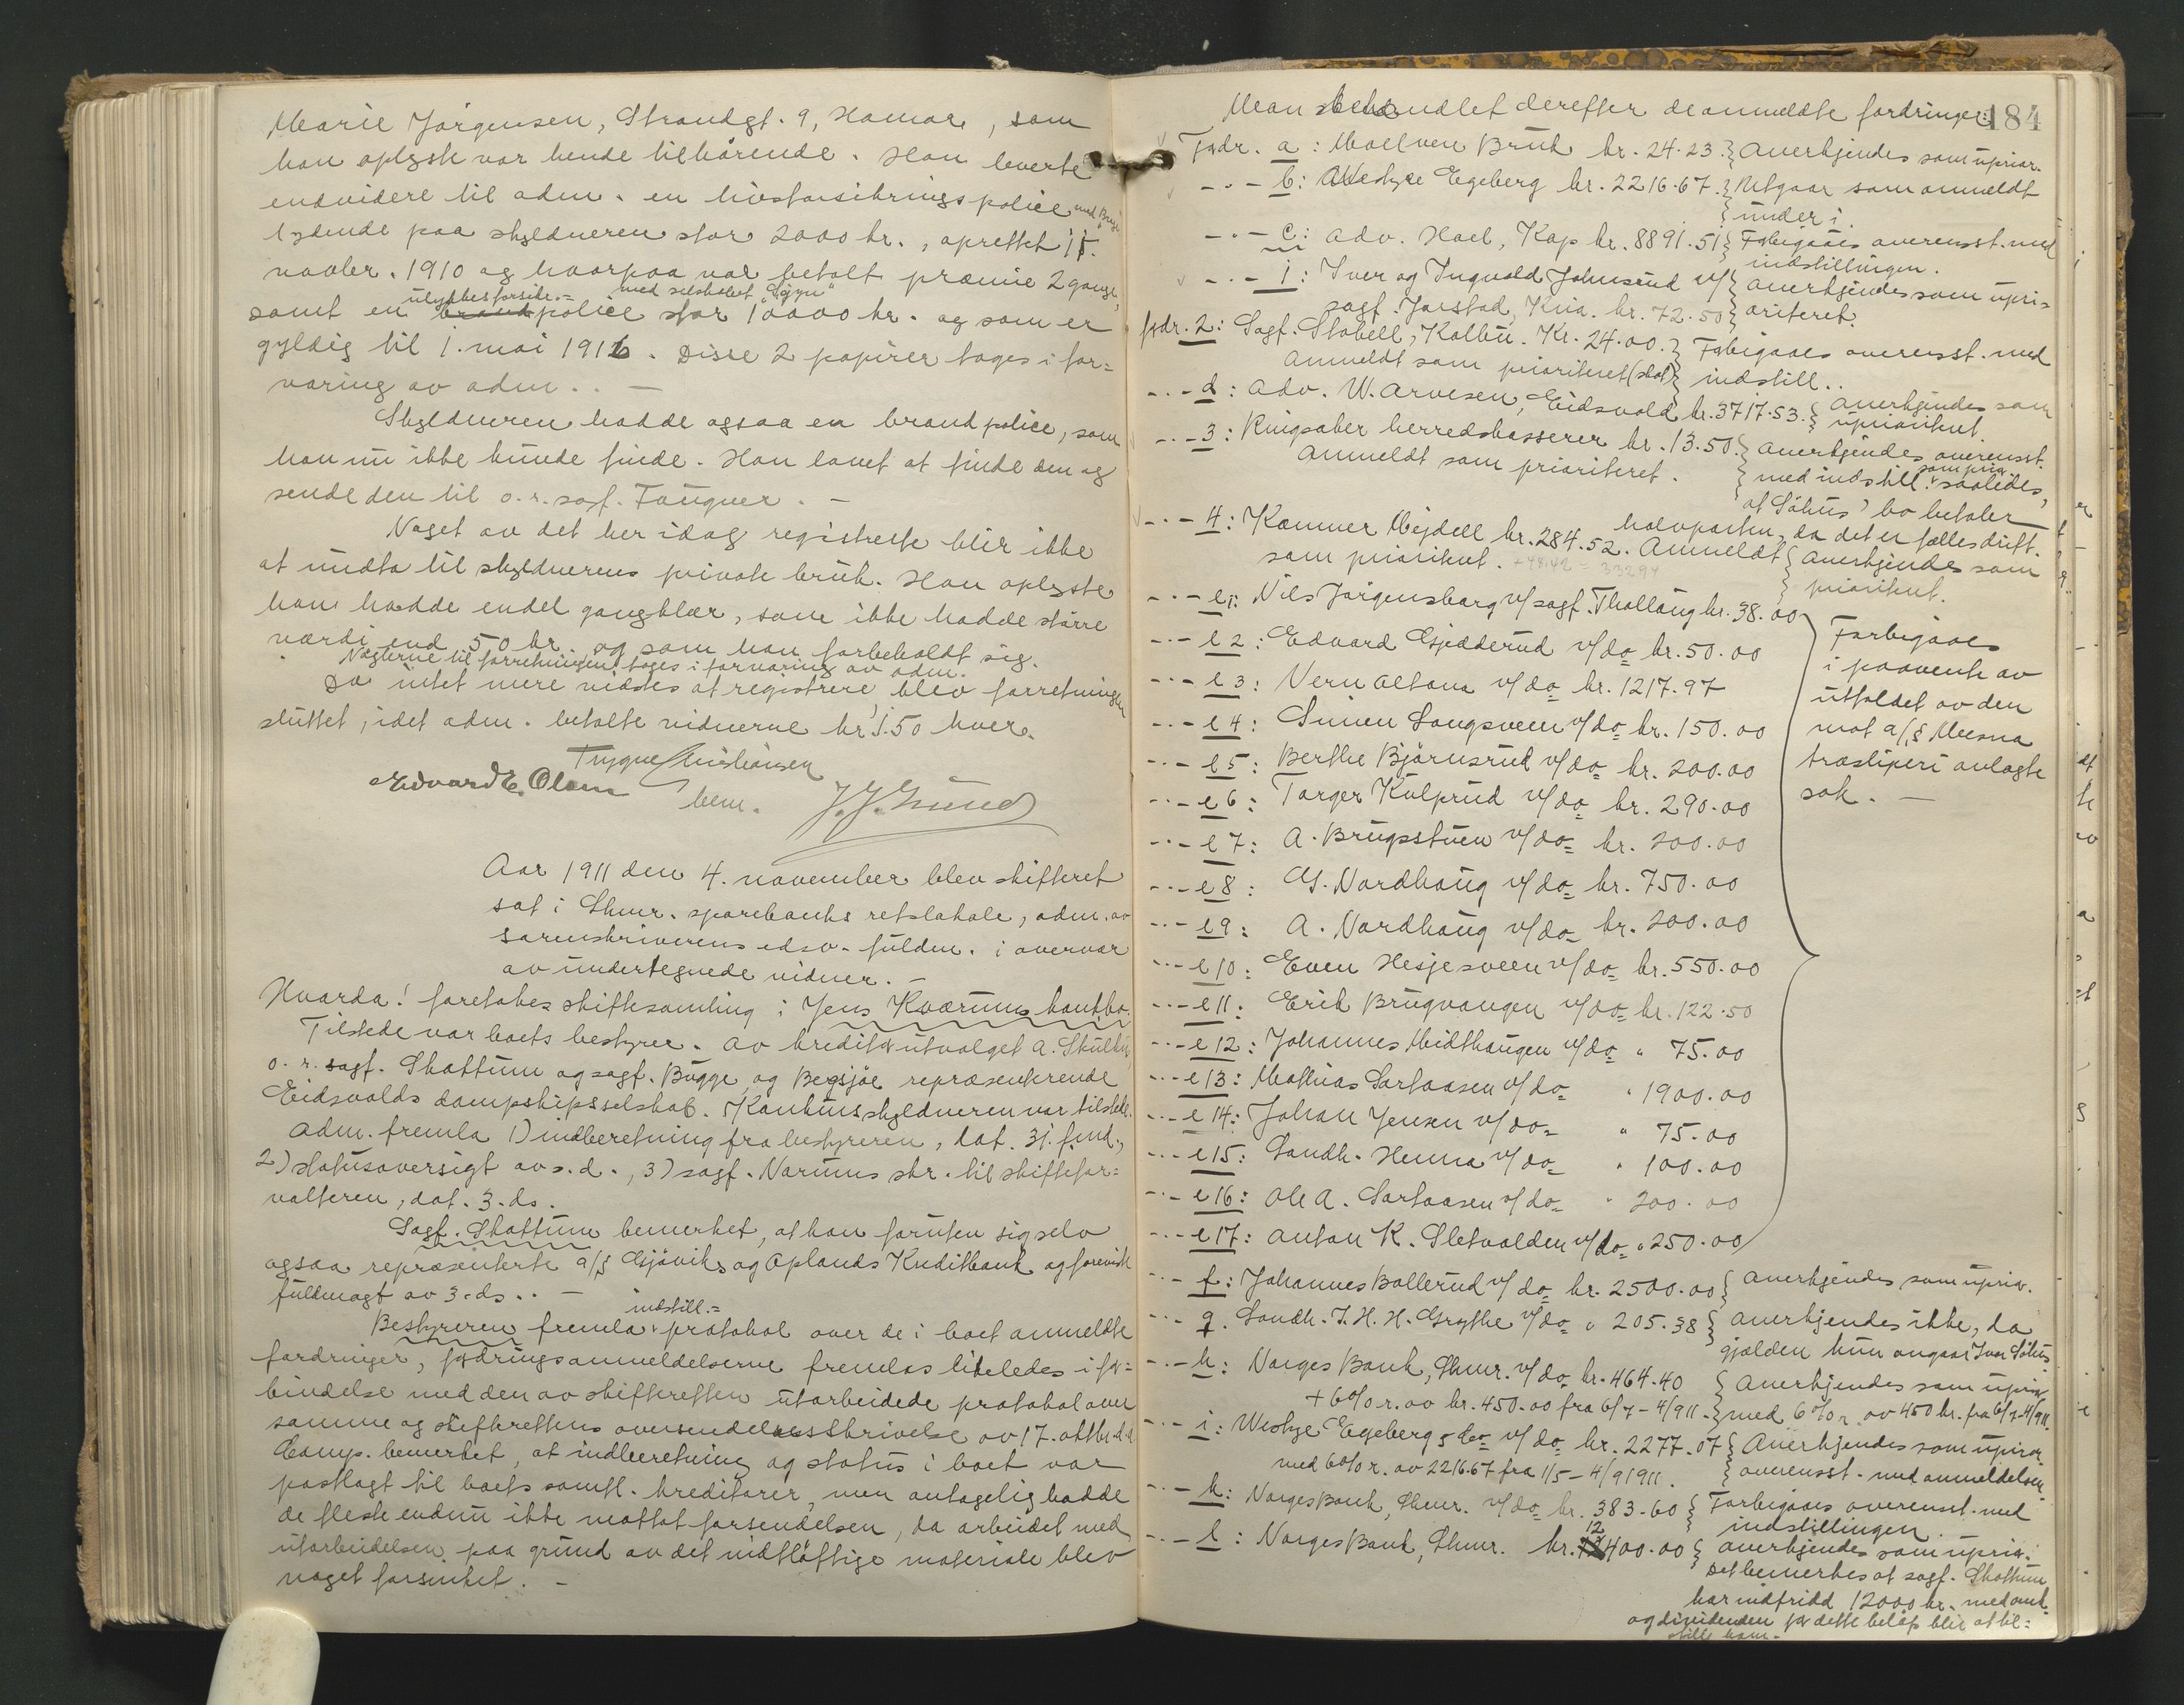 Marie Jørgensen, Strandgt. 9, Hamar, som
han oplyste var hende tilhørende. Han leverte
endvidere til adm. en livsforsikringspolice
lydende paa skyldneren stor 2000 kr., oprettet 15.
novbr. 1910 og hvorpaa var betalt præmie 2 gange,
ulykkesforsikr.= med selskabet "Sigyn"
samt en brandpolice stor 10000 kr. og som er
gyldig til 1. mai 1916. Disse 2 papirer tages i for=
varing av adm.. —
Skyldneren hadde ogsaa en brandpolice, som
han nu ikke kunde finde. Han lovet at finde den og
sende den til o.r.sagf. Fougner. —
Noget av det her idag registrerte blir ikke
at undta til skyldnerens private bruk. Han oplyste
han hadde endel gangklær, som ikke hadde større
værdi end 50 kr. og som han forbeholdt sig.
Nøglerne til forretningen toges i forvaring av adm.
Da intet mere vidstes at registrere, blev forretningen
sluttet, idet adm. betalte vidnerne kr. 1.50 hver.
Trygve Christiansen
Edvard E. Olsen bem. J. J. Grund
Aar 1911 den 4. november blev skifteret
sat i Lhmr. sparebanks retslokale, adm. av
sorenskriverens edsv. fuldm. i overvær
av undertegnede vidner. —
Hvorda! foretokes skiftesamling i Jens Kværums konkbo.
Tilstede var boets bestyrer. Av kreditorutvalget A. Skulhus
o.r.sagf. Skattum og sagf. Bugge og Bergsjøe repræsenterende
Eidsvolds dampskipsselskab. Konkursskyldneren var tilstede.
Adm. fremla 1) indberetning fra bestyreren, dat. 31. f.md.,
2) statusoversigt av s.d., 3) sagf. Narums skr. til skiftefor=
valteren, dat. 3. ds.
Sagf. Skattum bemerket, at han foruten sig selv
ogsaa repræsenterte a/s Gjøviks og Oplands Kreditbank og foreviste
fuldmagt av 3. ds.. —
indstill.=
Bestyreren fremla protokol over de i boet anmeldte
fordringer, fordringsanmeldelserne fremlas likeledes i for=
bindelse med den av skifteretten utarbeidede protokol over
samme og skifterettens oversendelsesskrivelse av 17. oktbr. d.a.
Comp. bemerket, at indberetning og status i boet var
postlagt til boets samtl. kreditorer, men antagelig hadde
de fleste endnu ikke mottat forsendelsen, da arbeidet med
utarbeidelsen paa grund av det vidtløftige materiale blev
noget forsinket. —
184
Man behandlet derefter de anmeldte fordringer:
Fordr. a: Moelven Bruk kr. 24.23. } Anerkjendes som uprior.
- " - b: Westye Egeberg kr. 2216.67. } Utgaar som anmeldt
under i.
- " - c: Adv. Hoel, Kap kr. 8891.51 } Forbigaaes overensst. med
indstillingen.
- " - 1: Iver og Ingvald Johnsrud v/ } Anerkjendes som upri=
sagf. Jarstad, Kria. kr. 72.50 } oriteret.
Fordr. 2: Sagf. Stabell, Kolbu. Kr. 24.00. } Forbigaaes overensst. med
Anmeldt som prioriteret (skat) } indstill..
- " - d: Adv. W. Arvesen, Eidsvold kr. 3717.53. } Anerkjendes som
uprioritert.
- " - 3: Ringsaker herredskasserer kr. 13.50. } Anerkjendes overensst.
Anmeldt som prioriteret. } med indstill. som prior. saaledes,
at Søhus' bo betaler
halvparten, da det er fælles drift.
- " - 4: Kæmner Mejdell kr. 284.52. Anmeldt } Anerkjendes som
som prioritert. + 48.42 = 332.94 prioritert.
- " - e1: Nils Jørgensborg v/sagf. Thallaug kr. 38.00
- " - e2: Edvard Gjæderud v/do kr. 50.00
- " - e3: Vern Altona v/do kr. 1217.97
- " - e4: Simen Langsveen v/do kr. 150.00
- " - e5: Berthe Bjørnsrud v/do kr. 200.00
- " - e6: Torger Kulprud v/do kr. 290.00
- " - e7: A. Brugstuen v/do kr. 200.00
- " - e8: G. Nordhaug v/do kr. 750.00
- " - e9: A. Nordhaug v/do kr. 200.00
- " - e10: Even Hesjesveen v/do kr. 550.00
- " - e11: Erik Brugvangen v/do kr. 122.50
- " - e12: Johannes Midthaugen v/do " 75.00
- " - e13: Mathias Lortaasen v/do " 1900.00
- " - e14: Johan Jensen v/do " 75.00
- " - e15: Landh. Henna v/do " 100.00
- " - e16: Ole A. Lortaasen v/do " 200.00
- " - e17: Anton K. Sletvolden v/do " 250.00
Forbigaaes
i paavente av
utfaldet av den
mot a/s Mesna
træsliperi anlagte
sak. —
- " - f: Johannes Ballerud v/do kr. 2500.00 } Anerkjendes som uprior.
- " - g. Landh. I. H. H. Grythe v/do " 205.38 } Anerkjendes ikke, da
gjælden kun angaar Ivar Søhus.
- " - h: Norges Bank, Lhmr. v/do kr. 464.40 } Anerkjendes som uprior.
+ 6% r. av kr. 450.00 fra 6/7 - 4/911. } med 6% r. av 450 kr. fra 6/7-4/911.
- " - i: Westye Egeberg & Co v/do kr. 2277.07 } Anerkjendes som uprior.
med 6% r. av 2216.67 fra 1/5 - 4/9 1911. } overensst. med anmeldelsen
- " - k: Norges Bank, Lhmr. v/do kr. 383.60 } Forbigaaes overensst. med
indstillingen.
- " - l: Norges Bank, Lhmr. kr. 12400.00 } Anerkjendes som uprior.
Det bemerkes at sagf. Skattum
har indfridd 12000 kr. med omk.
og dividenden for dette beløp blir at til=
stille ham.